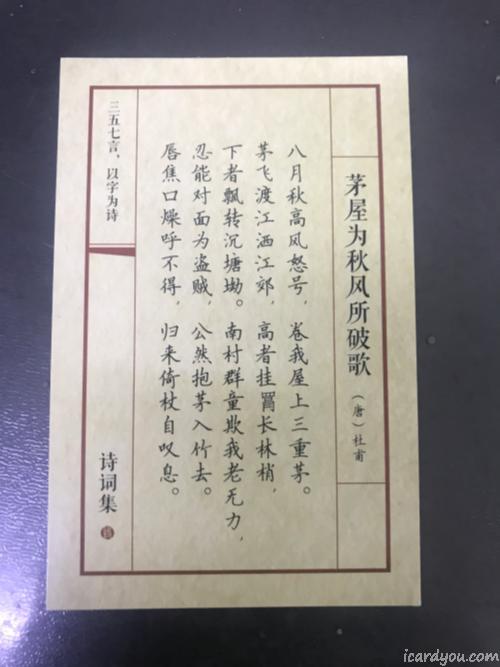 茅屋为秋风所破歌
（唐）杜甫
八月秋高风怒号，卷我屋上三重茅。
茅飞渡江洒江郊，高者挂罥长林梢，
下者飘转沉塘坳。南村群童欺我老无力，
忍能对面为盗贼，公然抱茅入竹去。
唇焦口燥呼不得，归来倚杖自叹息。
三五七言，以字为诗
诗词集
icardyou.com